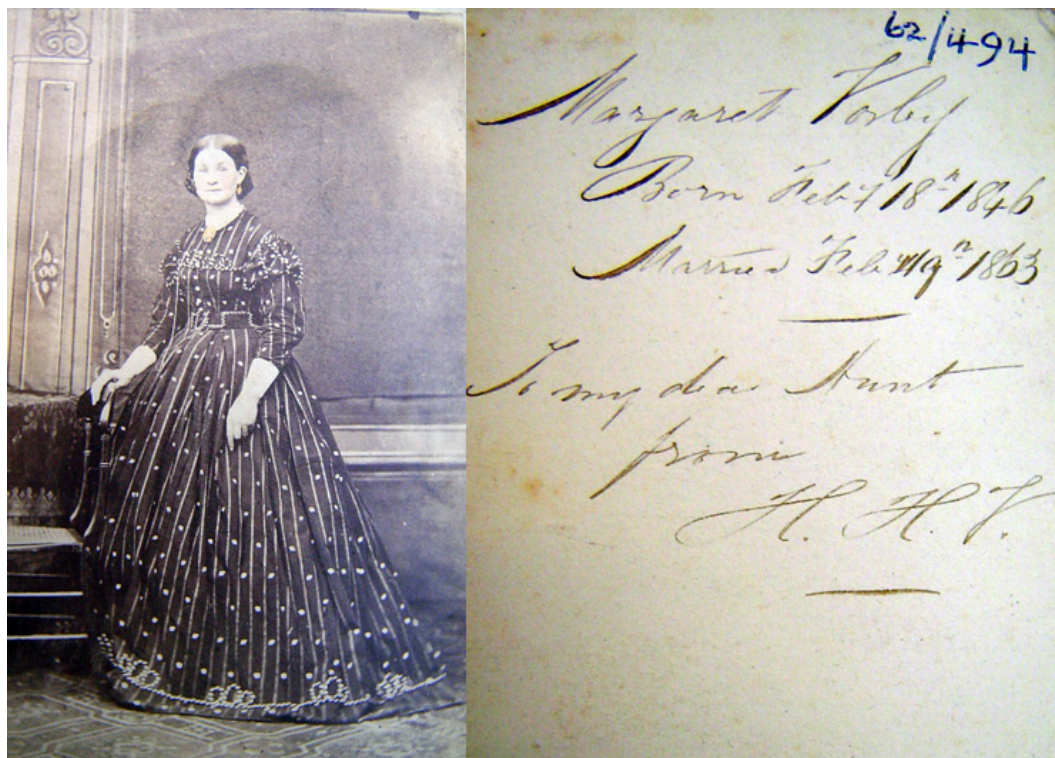 62/494
Margaret
Born Feby 18th 1846
Married Feb 19th 1863
To my dear Aunt
from
H. H. V.